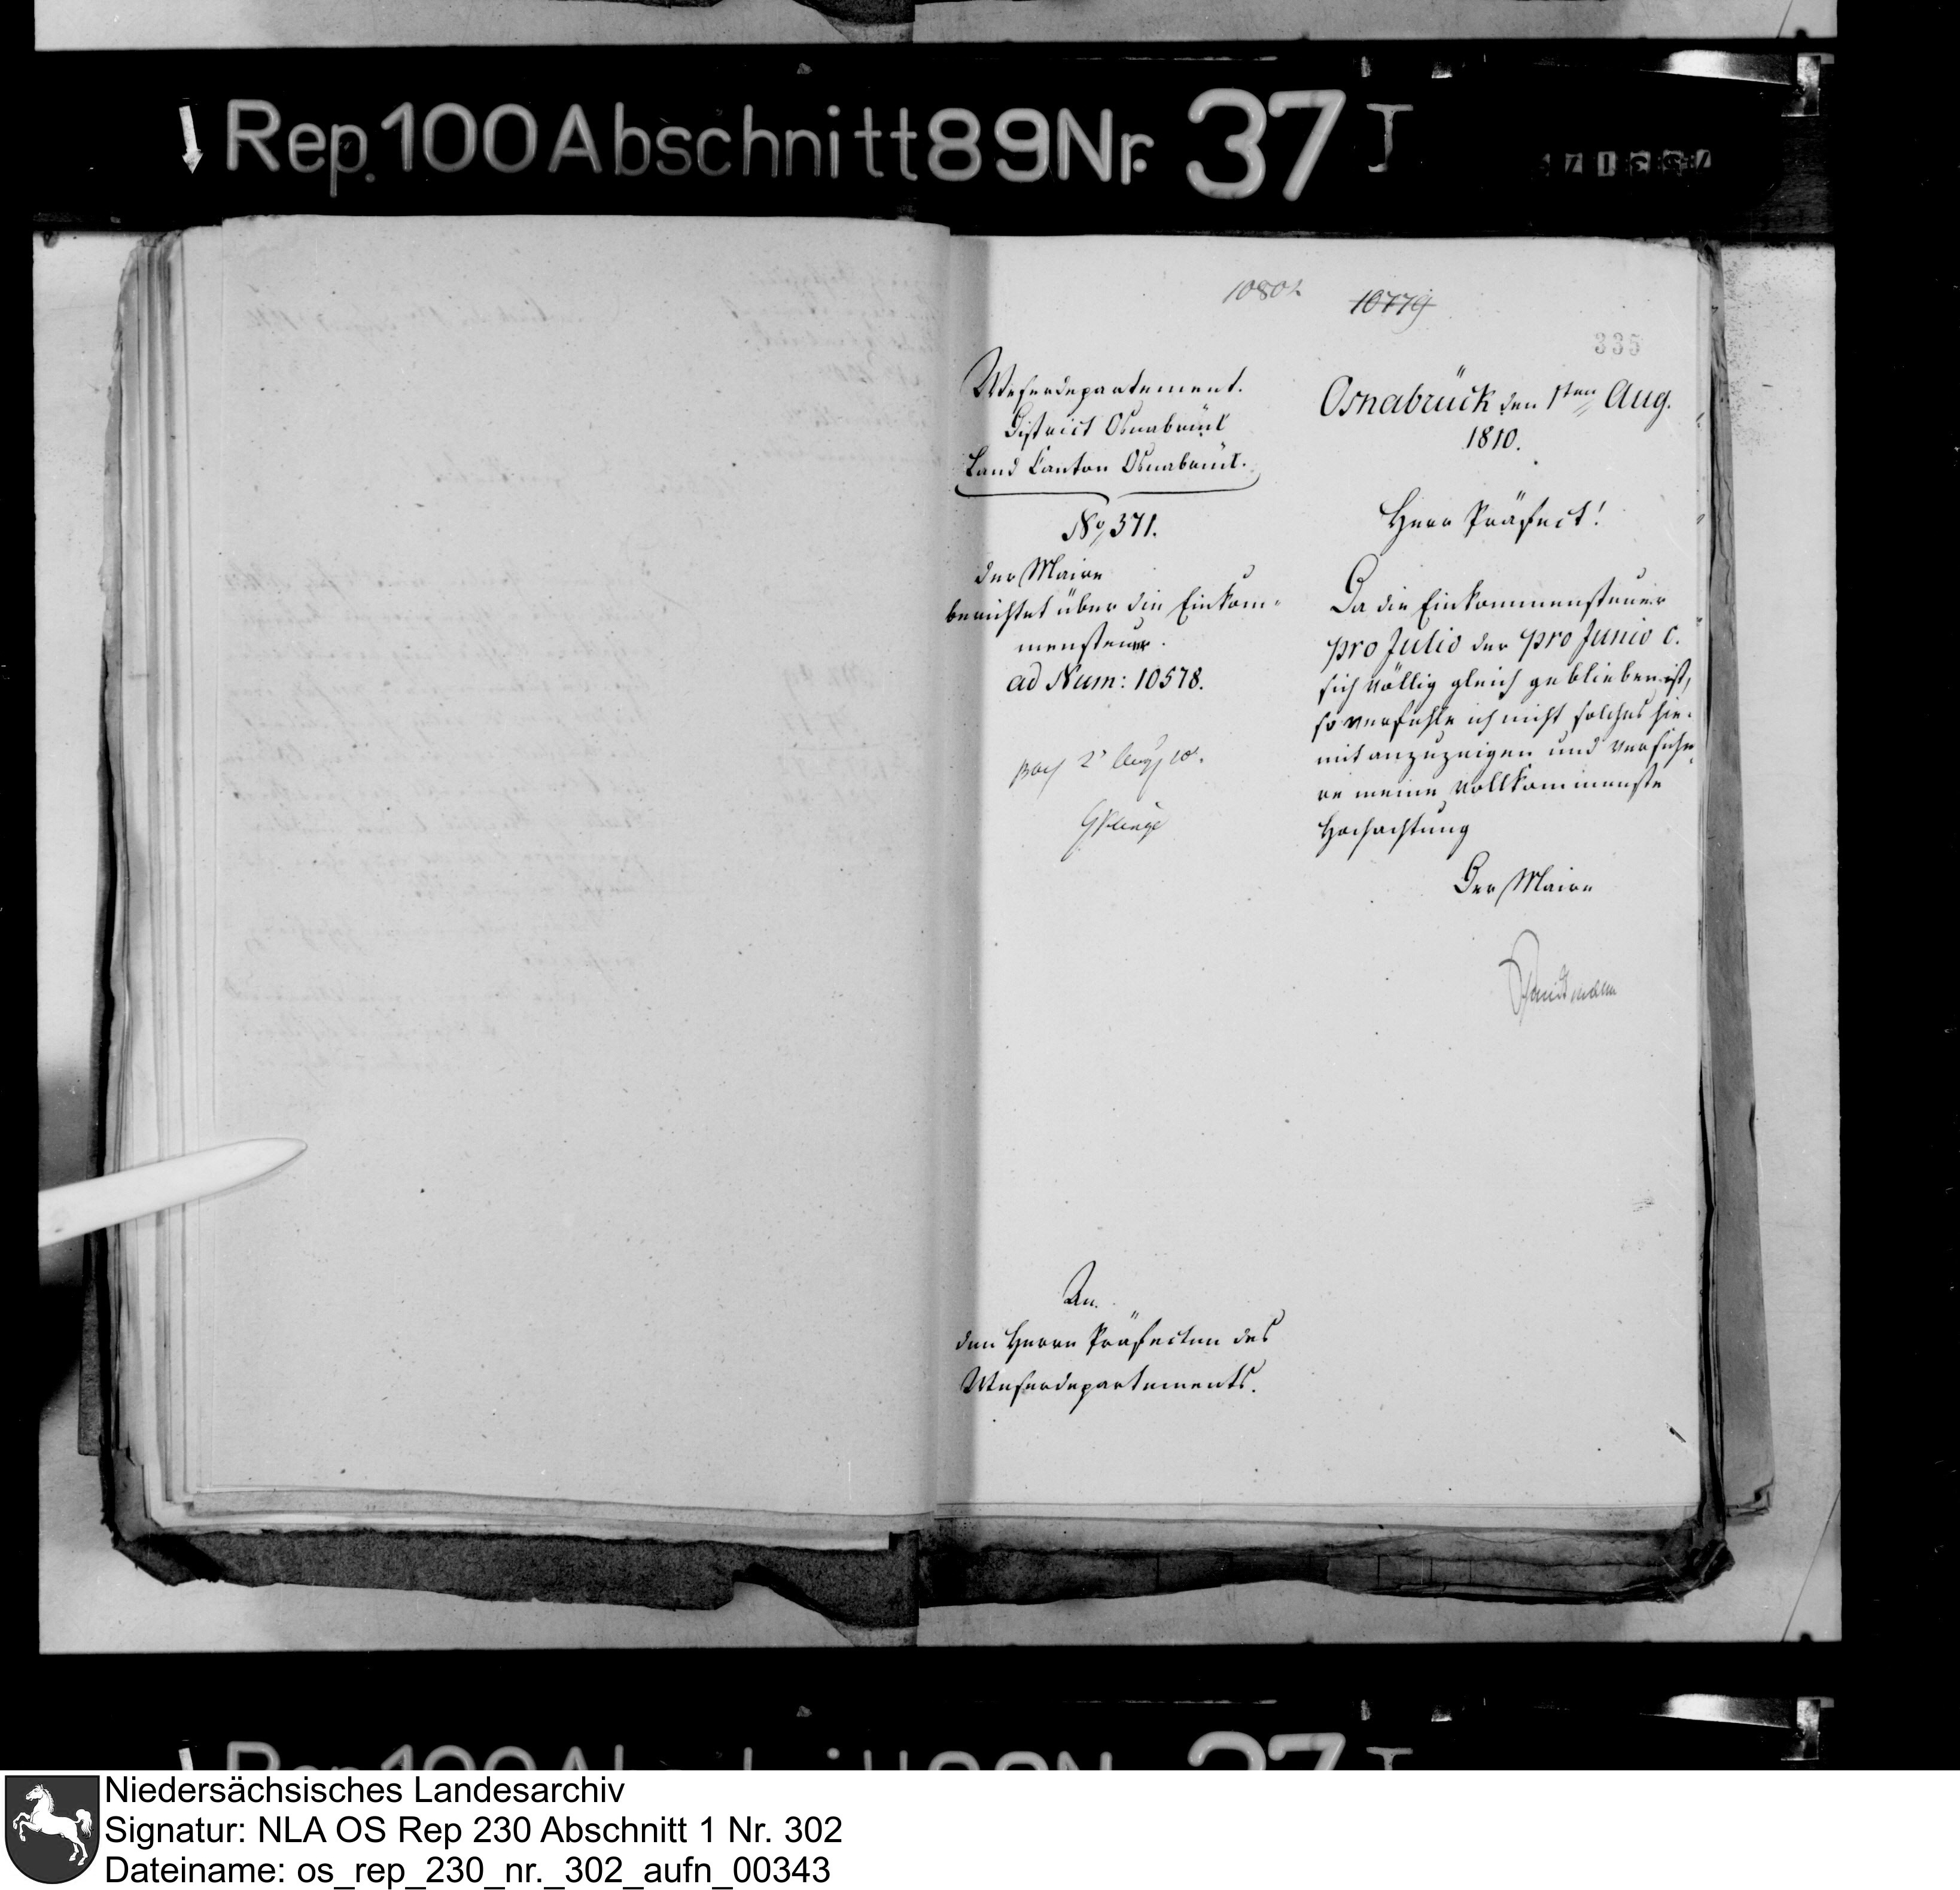 Rep. 100 Abschnitt 89 Nr. 37 I
10802 10779
335
Weserdepartement.
District Osnabrück
Land Canton Osnabrück.
No, 371.
der Maire
berichtet über die Einkom-
mensteuer.
ad Num: 10578.
2' Aug 10.
Osnabrück den 1ten Aug.
1810.
Herr Präfect!
Da die Einkommensteuer
pro Julio der pro Junio c.
sich völlig gleich geblieben ist,
so verfehle ich nicht solches hie-
mit anzuzeigen und versiche-
re meine vollkommenste
Hochachtung
Der Maire
An
den Herrn Präfecten des
Weserdepartements.
Niedersächsisches Landesarchiv
Signatur: NLA OS Rep 230 Abschnitt 1 Nr. 302
Dateiname: os_rep_230_nr._302_aufn_00343